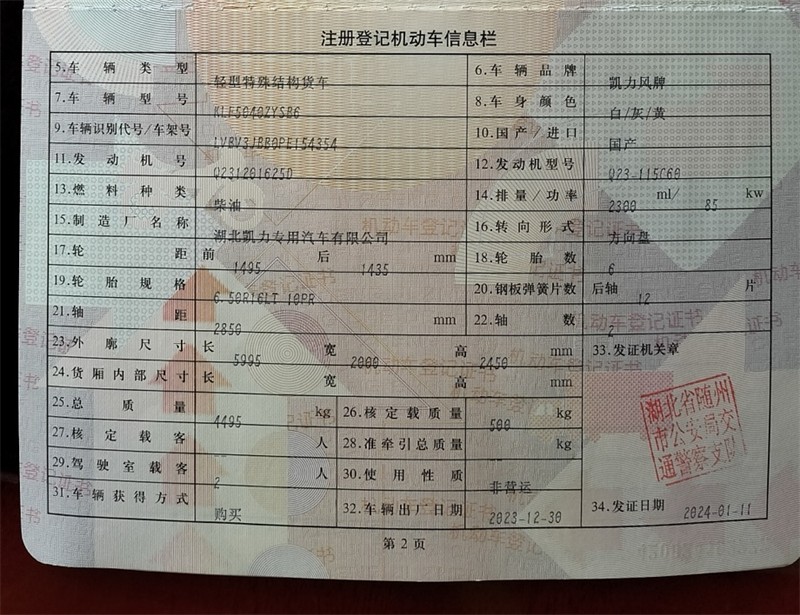 注册登记机动车信息栏
5.车辆类型 轻型特殊结构货车 6.车辆品牌 凯力风牌
7.车辆型号 KLF5040ZYSB6 8.车身颜色 白/灰/黄
9.车辆识别代号/车架号 LVBV3JBB0PE154354 10.国产/进口 国产
11.发动机号 Q231201625D 12.发动机型号 Q23-115C60
13.燃料种类 柴油 14.排量/功率 2300 ml/ 85 kw
15.制造厂名称 湖北凯力专用汽车有限公司 16.转向形式 方向盘
17.轮距 前 1495 后 1435 mm 18.轮胎数 6
19.轮胎规格 6.50R16LT 10PR 20.钢板弹簧片数 后轴 12 片
21.轴距 2850 mm 22.轴数 2
23.外廓尺寸 长 5995 宽 2000 高 2450 mm 33.发证机关章
24.货厢内部尺寸 长 宽 高 mm
25.总质量 4495 kg 26.核定载质量 500 kg
27.核定载客 -- 人 28.准牵引总质量 -- kg
29.驾驶室载客 2 人 30.使用性质 非营运
31.车辆获得方式 购买 32.车辆出厂日期 2023-12-30 34.发证日期 2024-01-11
湖北省随州
市公安局交
通警察支队
第2页